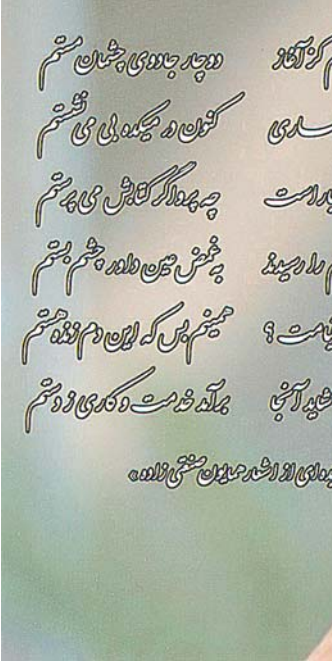 کز آغاز دوچار جادوی چشمان مستم
ساری کنون در میکده بی می نشستم
یار است چه پروا گر کتابش می پرستم
را رسیدند به غمض عین داور چشم بستم
یامت ؟ همینم بس که این دم زنده هستم
شاید آنجا برآید خدمت و کاری ز دستم
یده‌ای از اشعار همایون صنعتی زاده»